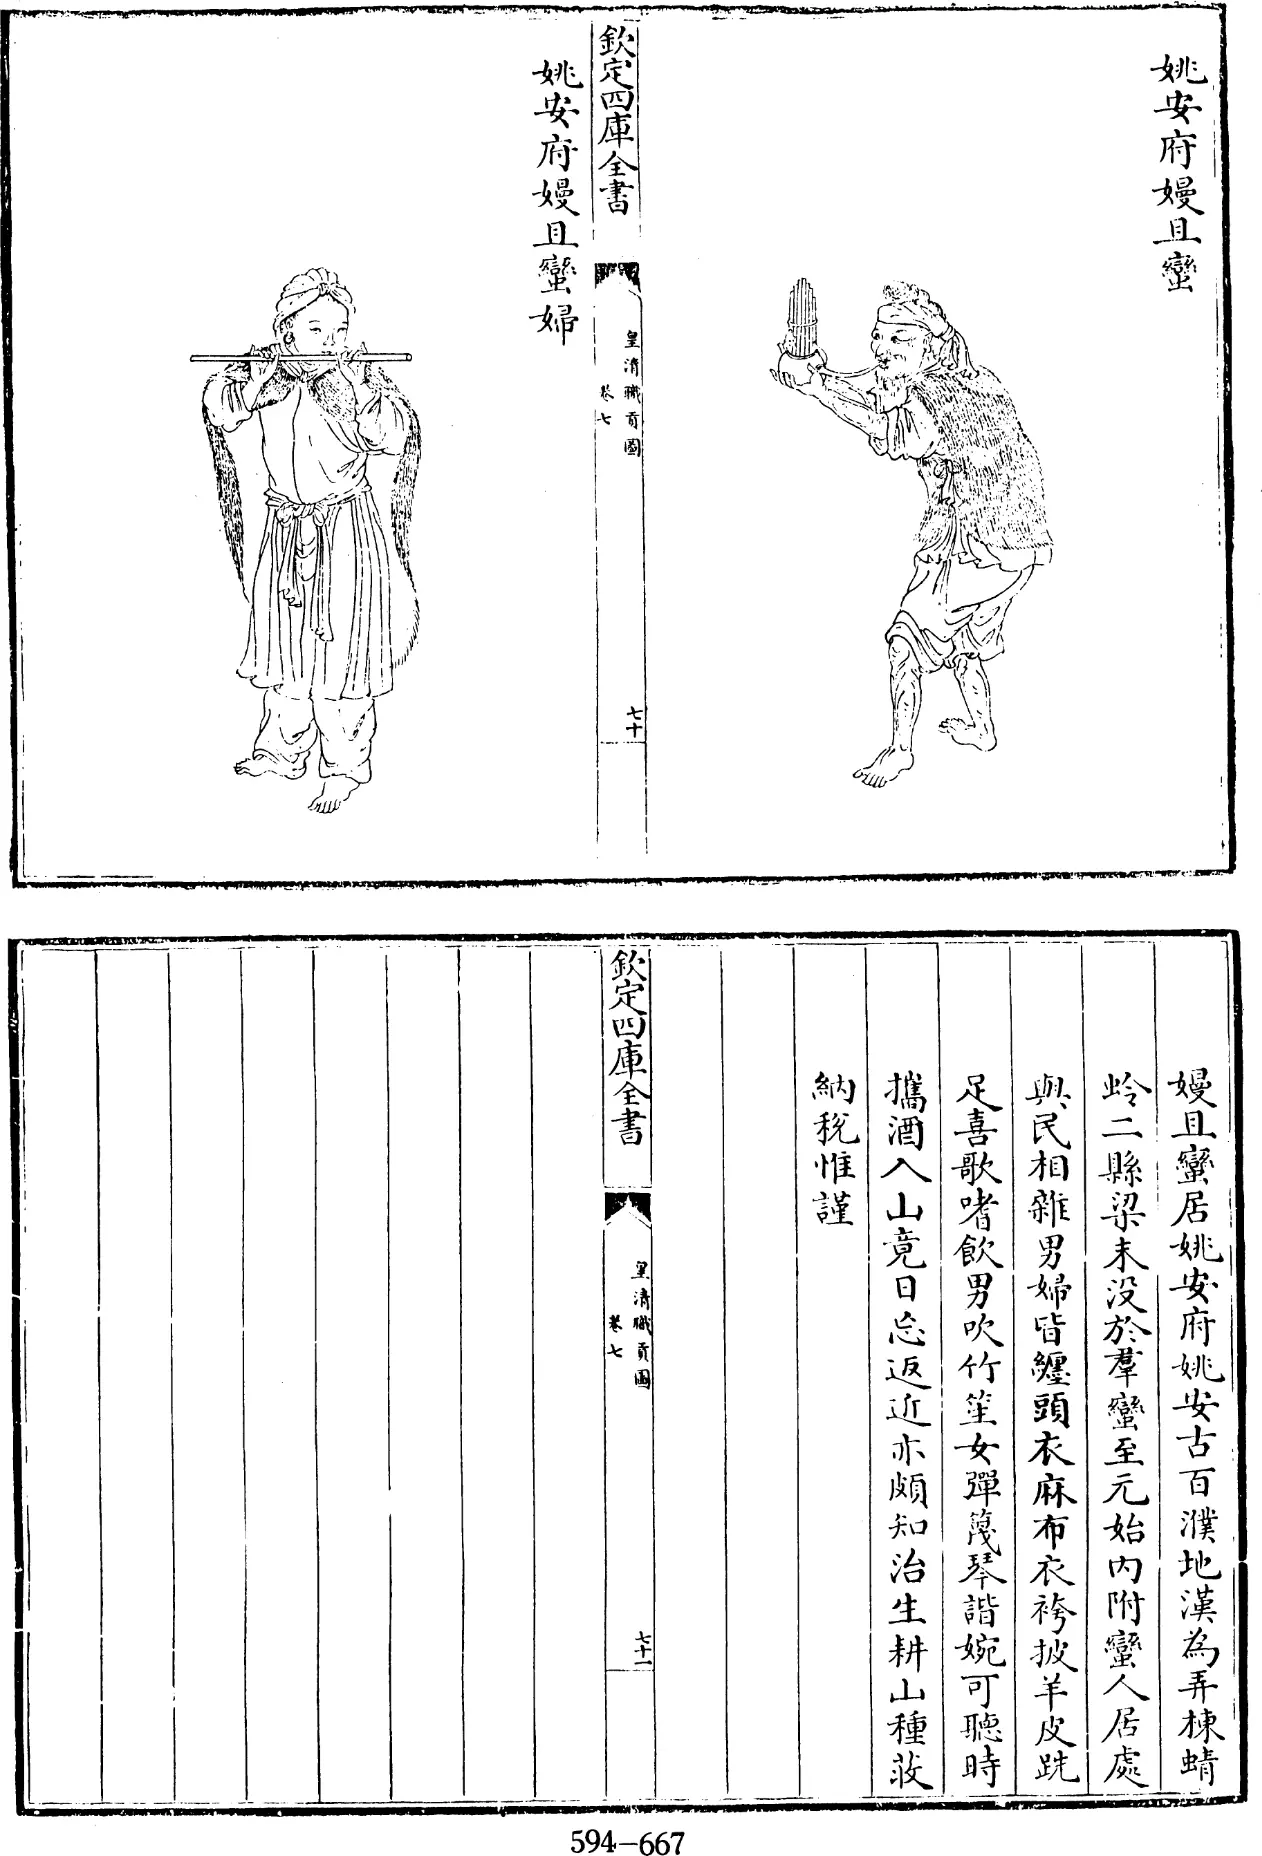 姚安府嫚且蠻
欽定四庫全書
皇清職貢圖
卷七
七十
姚安府嫚且蠻婦
嫚且蠻居姚安府姚安古百濮地漢為弄棟蜻
蛉二縣梁末没於羣蠻至元始内附蠻人居處
與民相雜男婦皆纏頭衣麻布衣袴披羊皮跣
足喜歌嗜飲男吹竹笙女彈篾琴諧婉可聽時
攜酒入山竟日忘返近亦頗知治生耕山種荍
納稅惟謹
欽定四庫全書
皇清職貢圖
卷七
七十一
594-667